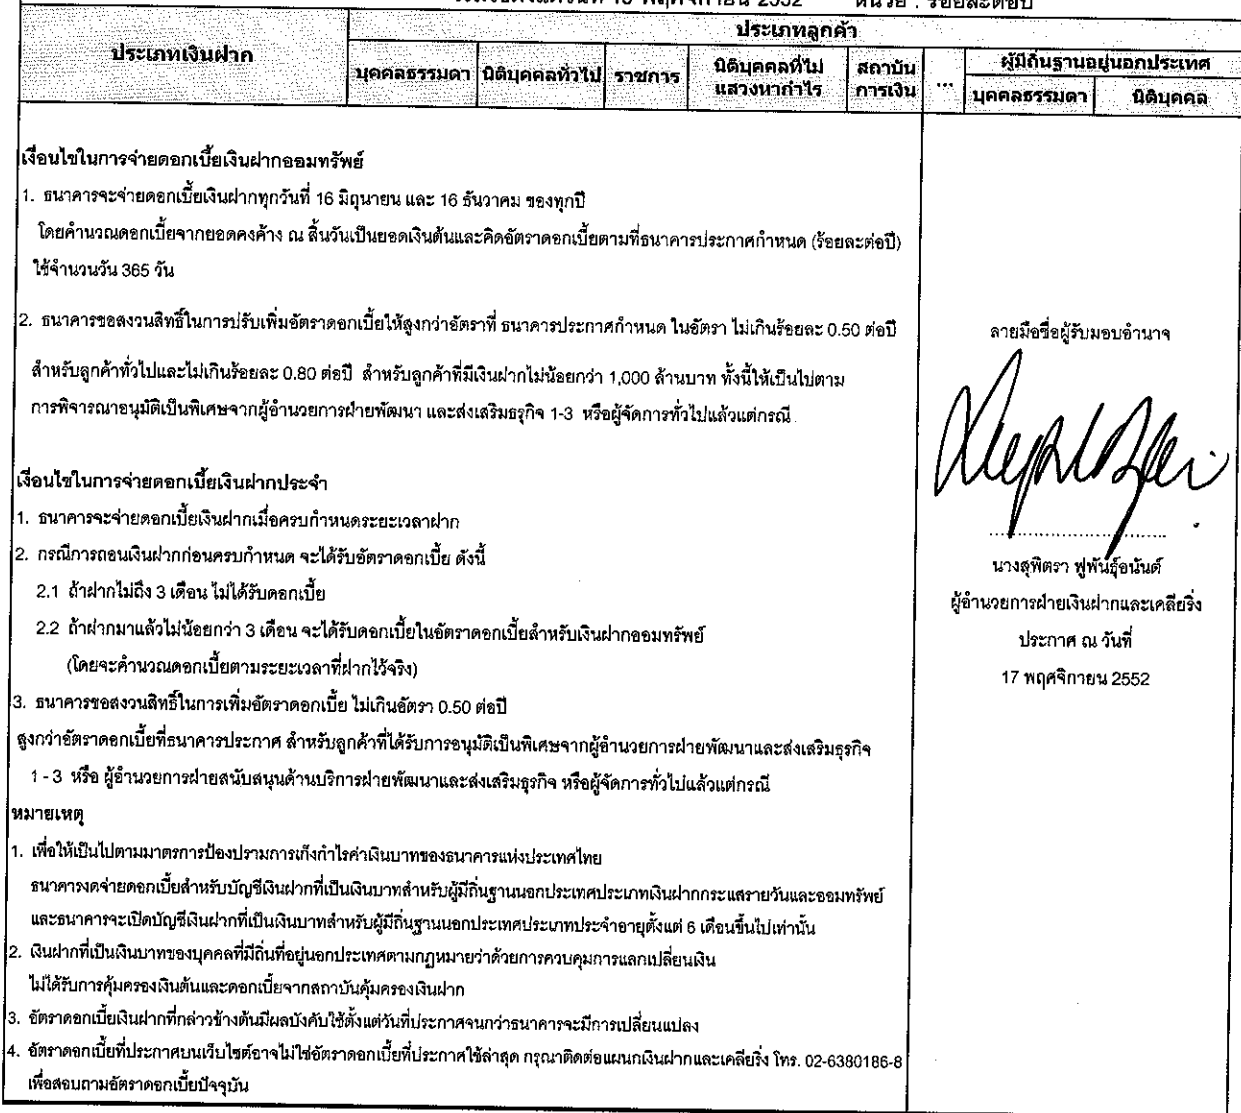 หน่วย : ร้อยละต่อปี
ประเภทเงินฝาก
ประเภทลูกค้า
บุคคลธรรมดา นิติบุคคลทั่วไป ราชการ นิติบุคคลที่ไม่แสวงหากำไร สถาบันการเงิน ... ผู้มีถิ่นฐานอยู่นอกประเทศ
บุคคลธรรมดา นิติบุคคล
เงื่อนไขในการจ่ายดอกเบี้ยเงินฝากออมทรัพย์
1. ธนาคารจะจ่ายดอกเบี้ยเงินฝากทุกวันที่ 16 มิถุนายน และ 16 ธันวาคม ของทุกปี
โดยคำนวณดอกเบี้ยจากยอดคงค้าง ณ สิ้นวันเป็นยอดเงินต้นและคิดอัตราดอกเบี้ยตามที่ธนาคารประกาศกำหนด (ร้อยละต่อปี)
ใช้จำนวนวัน 365 วัน
2. ธนาคารขอสงวนสิทธิ์ในการปรับเพิ่มอัตราดอกเบี้ยให้สูงกว่าอัตราที่ ธนาคารประกาศกำหนด ในอัตรา ไม่เกินร้อยละ 0.50 ต่อปี
สำหรับลูกค้าทั่วไปและไม่เกินร้อยละ 0.80 ต่อปี สำหรับลูกค้าที่มีเงินฝากไม่น้อยกว่า 1,000 ล้านบาท ทั้งนี้ให้เป็นไปตาม
การพิจารณาอนุมัติเป็นพิเศษจากผู้อำนวยการฝ่ายพัฒนา และส่งเสริมธุรกิจ 1-3 หรือผู้จัดการทั่วไปแล้วแต่กรณี
เงื่อนไขในการจ่ายดอกเบี้ยเงินฝากประจำ
1. ธนาคารจะจ่ายดอกเบี้ยเงินฝากเมื่อครบกำหนดระยะเวลาฝาก
2. กรณีการถอนเงินฝากก่อนครบกำหนด จะได้รับอัตราดอกเบี้ย ดังนี้
2.1 ถ้าฝากไม่ถึง 3 เดือน ไม่ได้รับดอกเบี้ย
2.2 ถ้าฝากมาแล้วไม่น้อยกว่า 3 เดือน จะได้รับดอกเบี้ยในอัตราดอกเบี้ยสำหรับเงินฝากออมทรัพย์
(โดยจะคำนวณดอกเบี้ยตามระยะเวลาที่ฝากไว้จริง)
3. ธนาคารขอสงวนสิทธิ์ในการเพิ่มอัตราดอกเบี้ย ไม่เกินอัตรา 0.50 ต่อปี
สูงกว่าอัตราดอกเบี้ยที่ธนาคารประกาศ สำหรับลูกค้าที่ได้รับการอนุมัติเป็นพิเศษจากผู้อำนวยการฝ่ายพัฒนาและส่งเสริมธุรกิจ
1 - 3 หรือ ผู้อำนวยการฝ่ายสนับสนุนด้านบริการฝ่ายพัฒนาและส่งเสริมธุรกิจ หรือผู้จัดการทั่วไปแล้วแต่กรณี
หมายเหตุ
1. เพื่อให้เป็นไปตามมาตรการป้องปรามการเก็งกำไรค่าเงินบาทของธนาคารแห่งประเทศไทย
ธนาคารงดจ่ายดอกเบี้ยสำหรับบัญชีเงินฝากที่เป็นเงินบาทสำหรับผู้มีถิ่นฐานนอกประเทศประเภทเงินฝากกระแสรายวันและออมทรัพย์
และธนาคารจะเปิดบัญชีเงินฝากที่เป็นเงินบาทสำหรับผู้มีถิ่นฐานนอกประเทศประเภทประจำอายุตั้งแต่ 6 เดือนขึ้นไปเท่านั้น
2. เงินฝากที่เป็นเงินบาทของบุคคลที่มีถิ่นที่อยู่นอกประเทศตามกฎหมายว่าด้วยการควบคุมการแลกเปลี่ยนเงิน
ไม่ได้รับการคุ้มครองเงินต้นและดอกเบี้ยจากสถาบันคุ้มครองเงินฝาก
3. อัตราดอกเบี้ยเงินฝากที่กล่าวข้างต้นมีผลบังคับใช้ตั้งแต่วันที่ประกาศจนกว่าธนาคารจะมีการเปลี่ยนแปลง
4. อัตราดอกเบี้ยที่ประกาศบนเว็บไซต์อาจไม่ใช่อัตราดอกเบี้ยที่ประกาศใช้ล่าสุด กรุณาติดต่อแผนกเงินฝากและเคลียริ่ง โทร. 02-6380186-8
เพื่อสอบถามอัตราดอกเบี้ยปัจจุบัน
ลายมือชื่อผู้รับมอบอำนาจ
นางสุพิตรา ฟูพันธุ์อนันต์
ผู้อำนวยการฝ่ายเงินฝากและเคลียริ่ง
ประกาศ ณ วันที่
17 พฤศจิกายน 2552